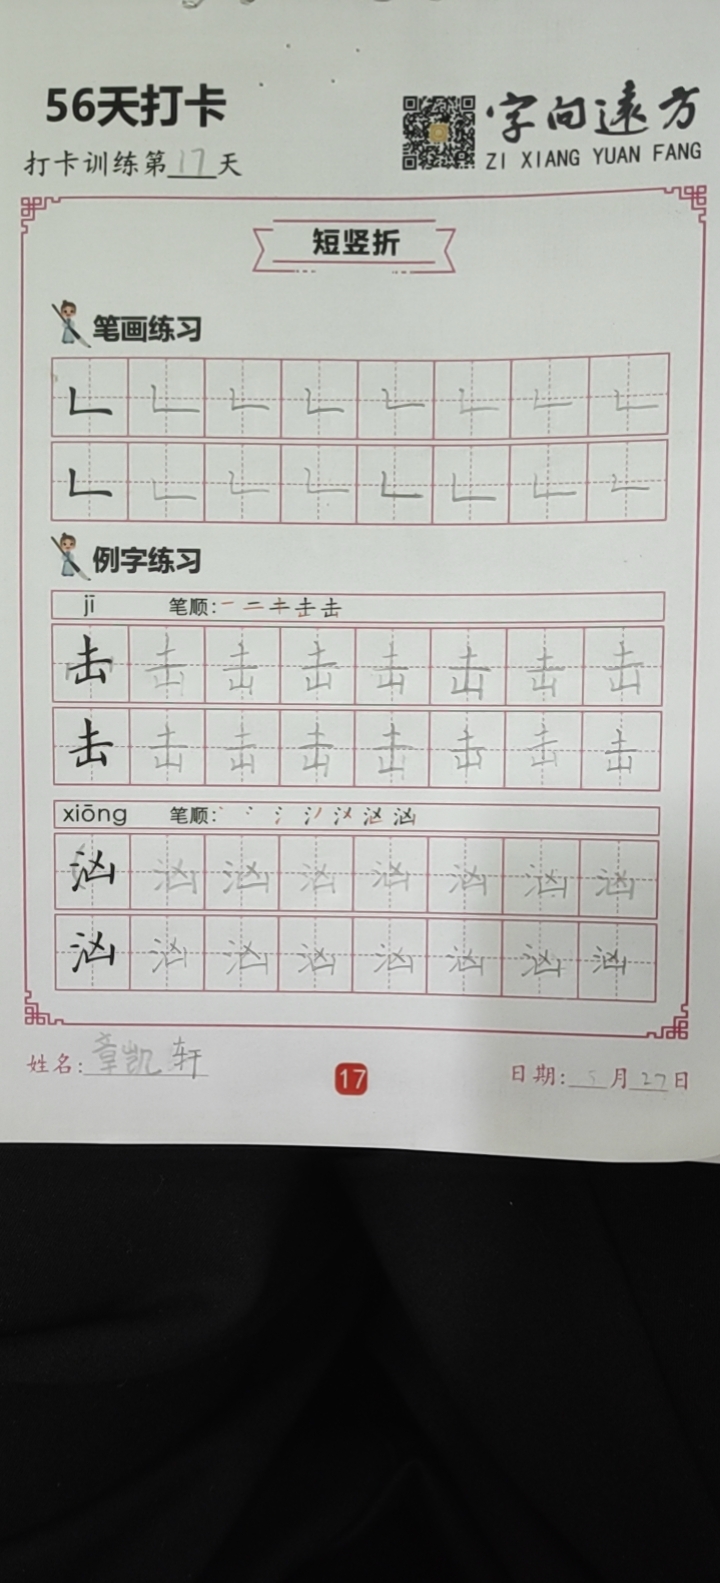 56天打卡
字向遠方
打卡训练第17天
ZI XIANG YUAN FANG
短竖折
笔画练习
例字练习
jī 笔顺:
击 击 击 击 击 击 击 击
击 击 击 击 击 击 击 击
xiōng 笔顺:
汹 汹 汹 汹 汹 汹 汹 汹
汹 汹 汹 汹 汹 汹 汹 汹
姓名:章凯轩
17
日期:5月27日